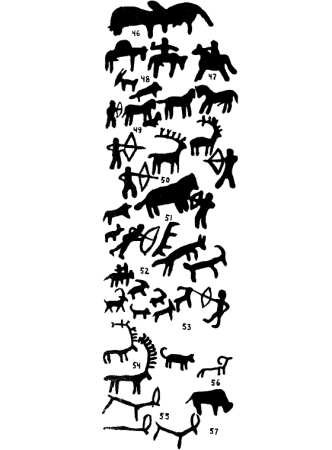 46
48 47
49
50
51
52
53
54
56
55
57